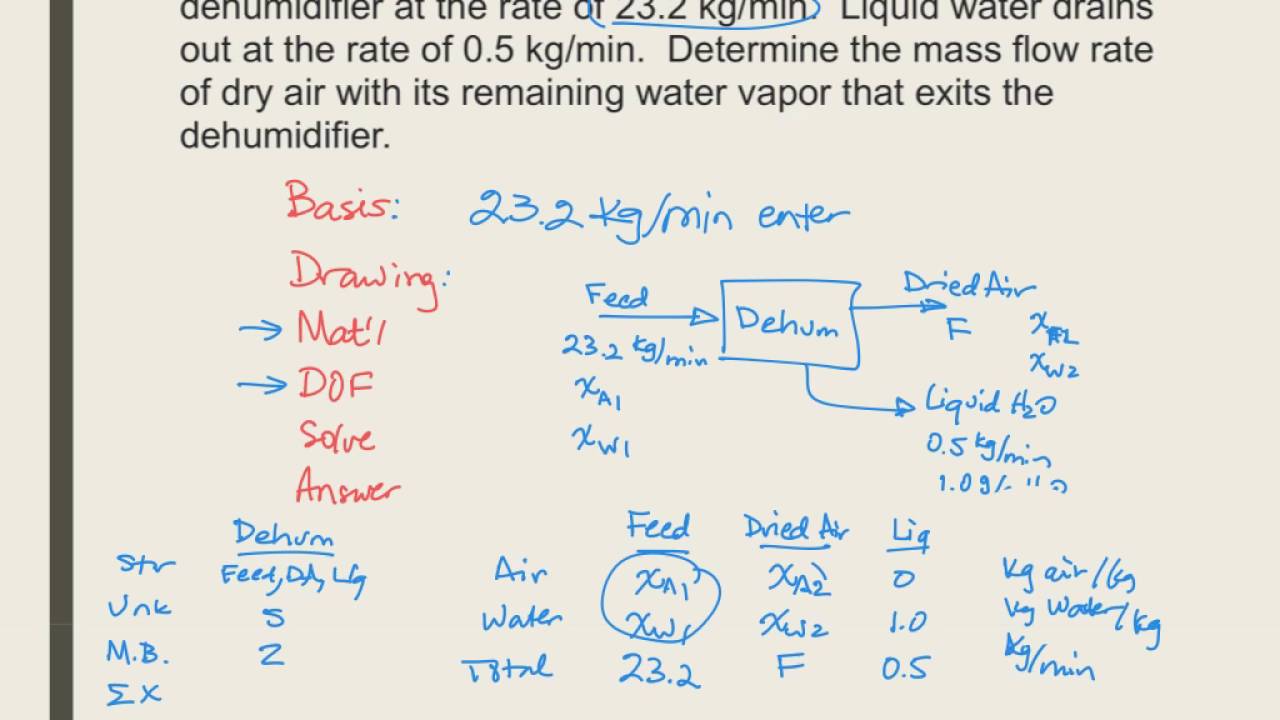 dehumidifier at the rate of 23.2 kg/min. Liquid water drains
out at the rate of 0.5 kg/min. Determine the mass flow rate
of dry air with its remaining water vapor that exits the
dehumidifier.
Basis: 23.2 kg/min enter
Drawing:
→ Mat'l
→ DOF
Solve
Answer
Feed
23.2 kg/min
xA1
xW1
Dehum
Dried Air
F xA2
xW2
Liquid H2O
0.5 kg/min
Dehum Feed Dried Air Liq
Str Feed, DA, Liq Air xA1 xA2 0 kg air/kg
Unk 5 Water xW1 xW2 1.0 kg water/kg
M.B. 2 Total 23.2 F 0.5 kg/min
ΣX